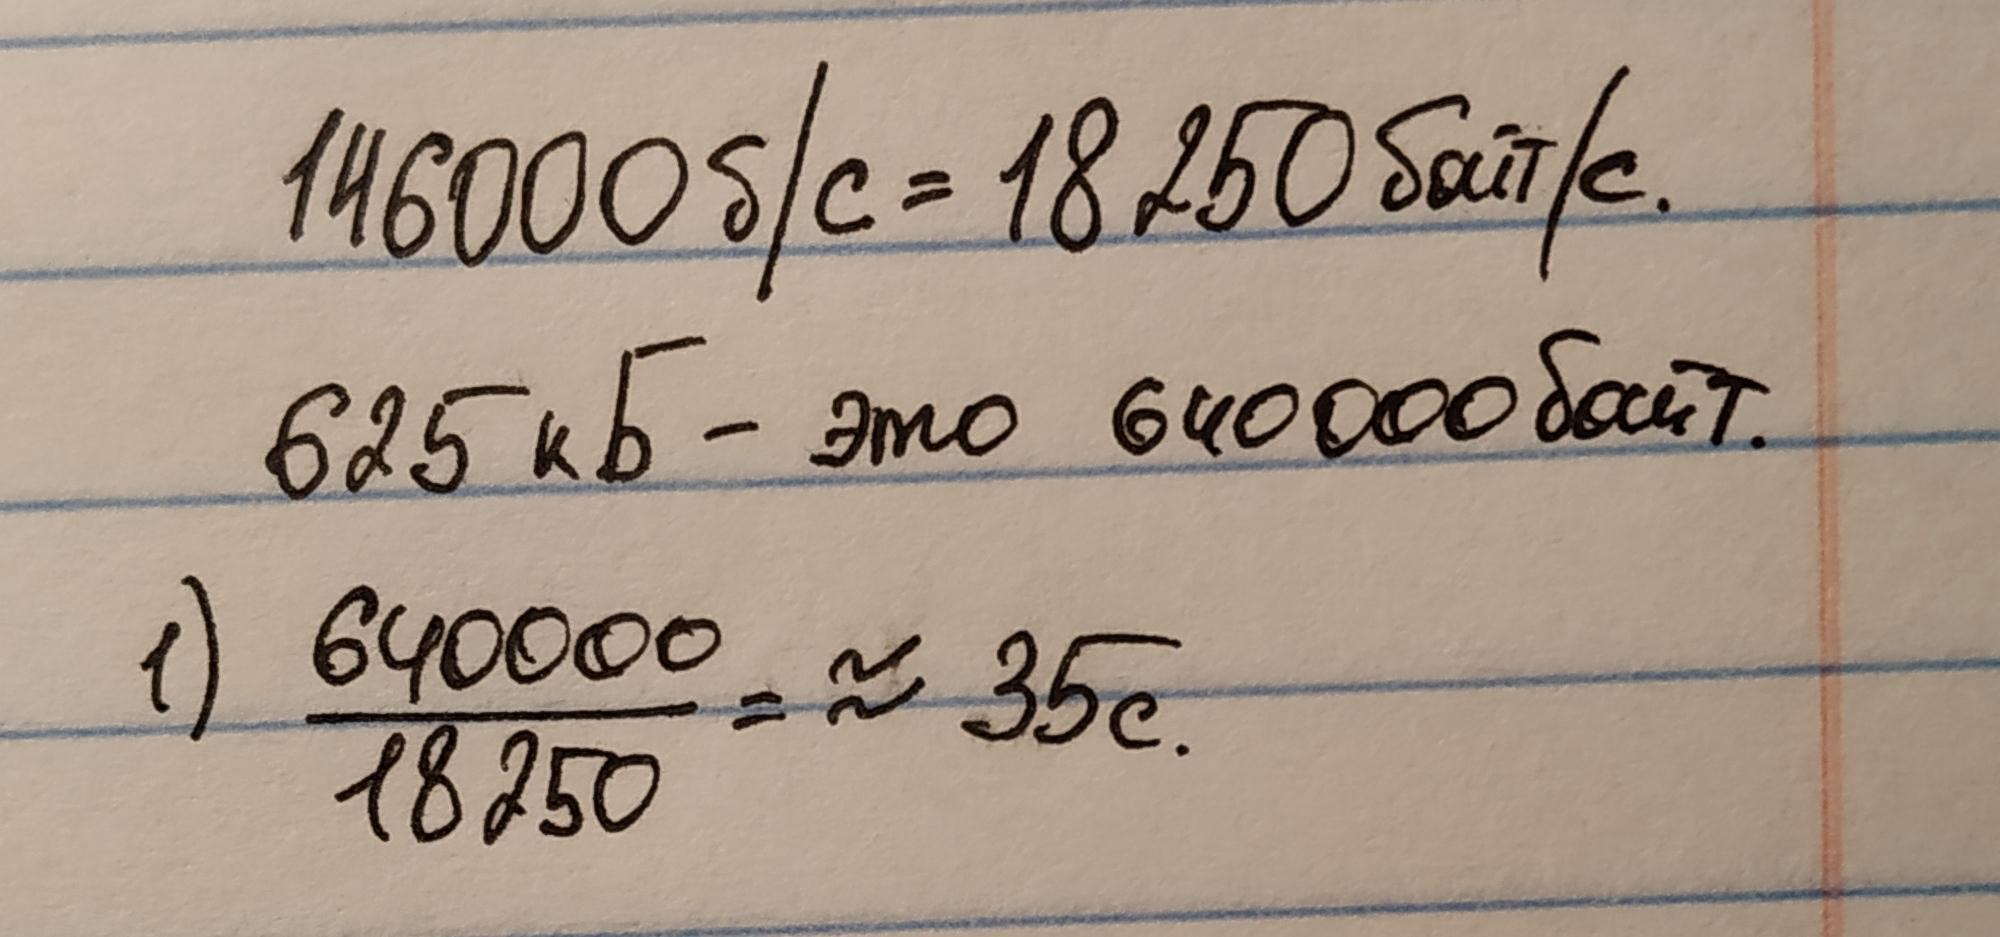 146000 б/с = 18 250 байт/с.
625 кБ - это 640000 байт.
1) 640000 / 18 250 = ≈ 35 с.